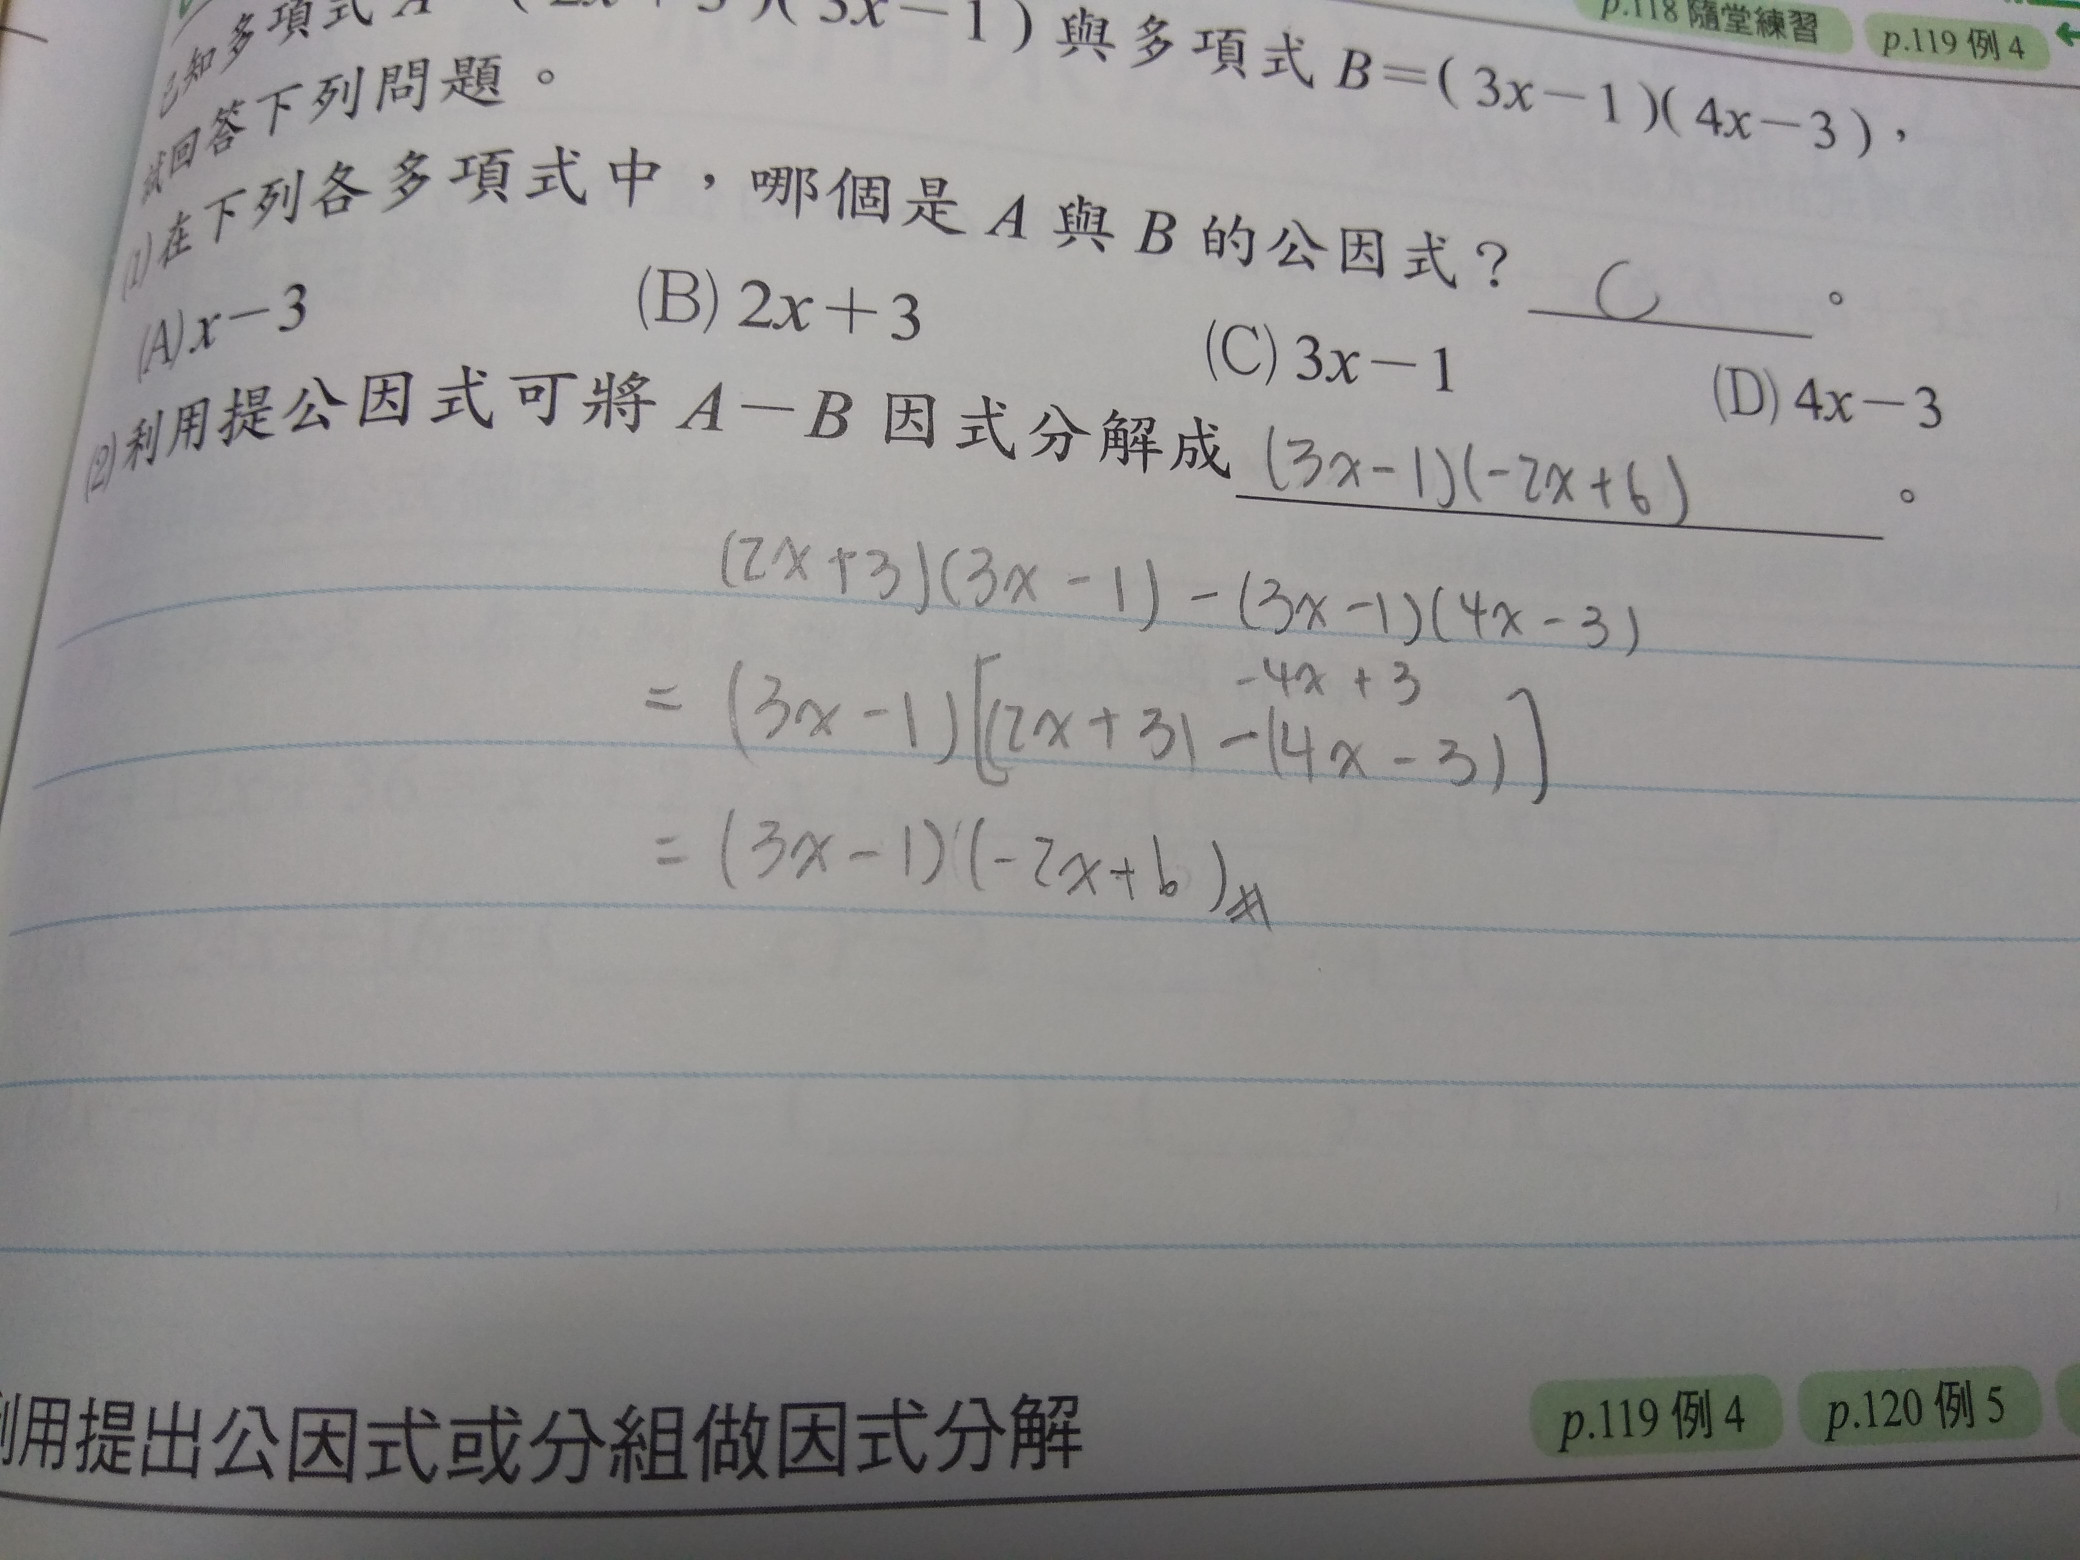 p.118 隨堂練習 p.119 例 4
已知多項式 A=(2x+3)(3x-1)與多項式 B=(3x-1)(4x-3),
試回答下列問題。
(1)在下列各多項式中,哪個是 A 與 B 的公因式? C 。
(A) x-3 (B) 2x+3 (C) 3x-1 (D) 4x-3
(2)利用提公因式可將 A-B 因式分解成 (3x-1)(-2x+6) 。
(2x+3)(3x-1)-(3x-1)(4x-3)
-4x+3
=(3x-1)[(2x+3)-(4x-3)]
=(3x-1)(-2x+6)#
利用提出公因式或分組做因式分解 p.119 例 4 p.120 例 5